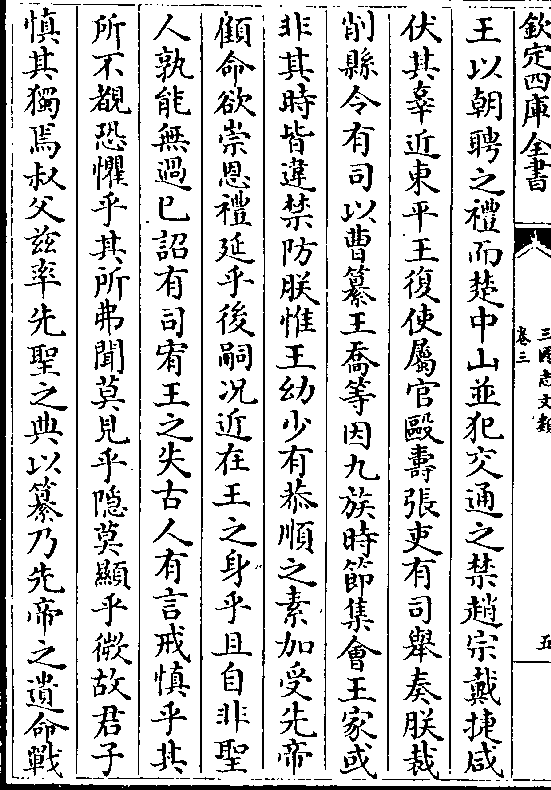 欽定四庫全書
三國志文類
卷三
五
王以朝聘之禮而楚中山並犯交通之禁趙宗戴捷咸
伏其辜近東平王復使屬官毆壽張吏有司舉奏朕裁
削縣令有司以曹纂王喬等因九族時節集會王家或
非其時皆違禁防朕惟王幼少有恭順之素加受先帝
顧命欲崇恩禮延乎後嗣况近在王之身乎且自非聖
人孰能無過已詔有司宥王之失古人有言戒慎乎其
所不覩恐懼乎其所弗聞莫見乎隱莫顯乎微故君子
慎其獨焉叔父兹率先聖之典以纂乃先帝之遺命戰